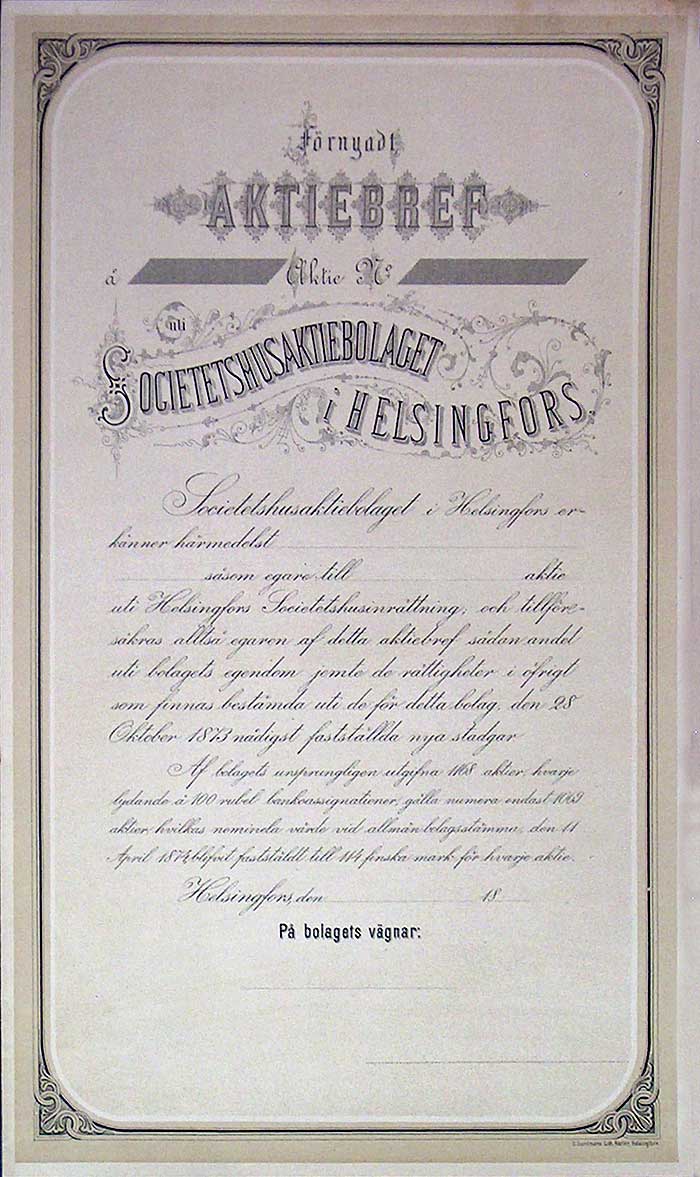 Förnyadt
AKTIEBREF
å Aktie No
uti
SOCIETETSHUSAKTIEBOLAGET
i HELSINGFORS.
Societetshusaktiebolaget i Helsingfors er-
känner härmedelst
såsom egare till aktie
uti Helsingfors Societetshusinrättning, och tillföre-
säkras alltså egaren af detta aktiebref sådan andel
uti bolagets egendom jemte de rättigheter i öfrigt
som finnas bestämda uti de för detta bolag, den 28
Oktober 1873 nådigst fastställda nya stadgar
Af bolagets ursprungligen utgifna 1168 aktier, hvarje
lydande å 100 rubel bankoassignationer, gälla numera endast 1069
aktier, hvilkas nominela värde vid allmän bolagsstämma, den 11
April 1874, blifvit faststäldt till 114 finska mark för hvarje aktie.
Helsingfors, den 18
På bolagets vägnar:
Lith. Helsingfors